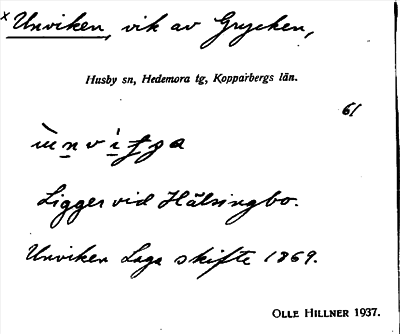 x Unviken, vik av Grycken,
Husby sn, Hedemora tg, Kopparbergs län.
61
Ligger vid Hälsingbo.
Unviken Laga skifte 1869.
OLLE HILLNER 1937.